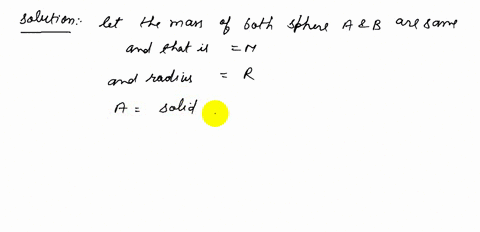 Solution:- let the mass of both sphere A & B are same
and that is = M
and radius = R
A = solid